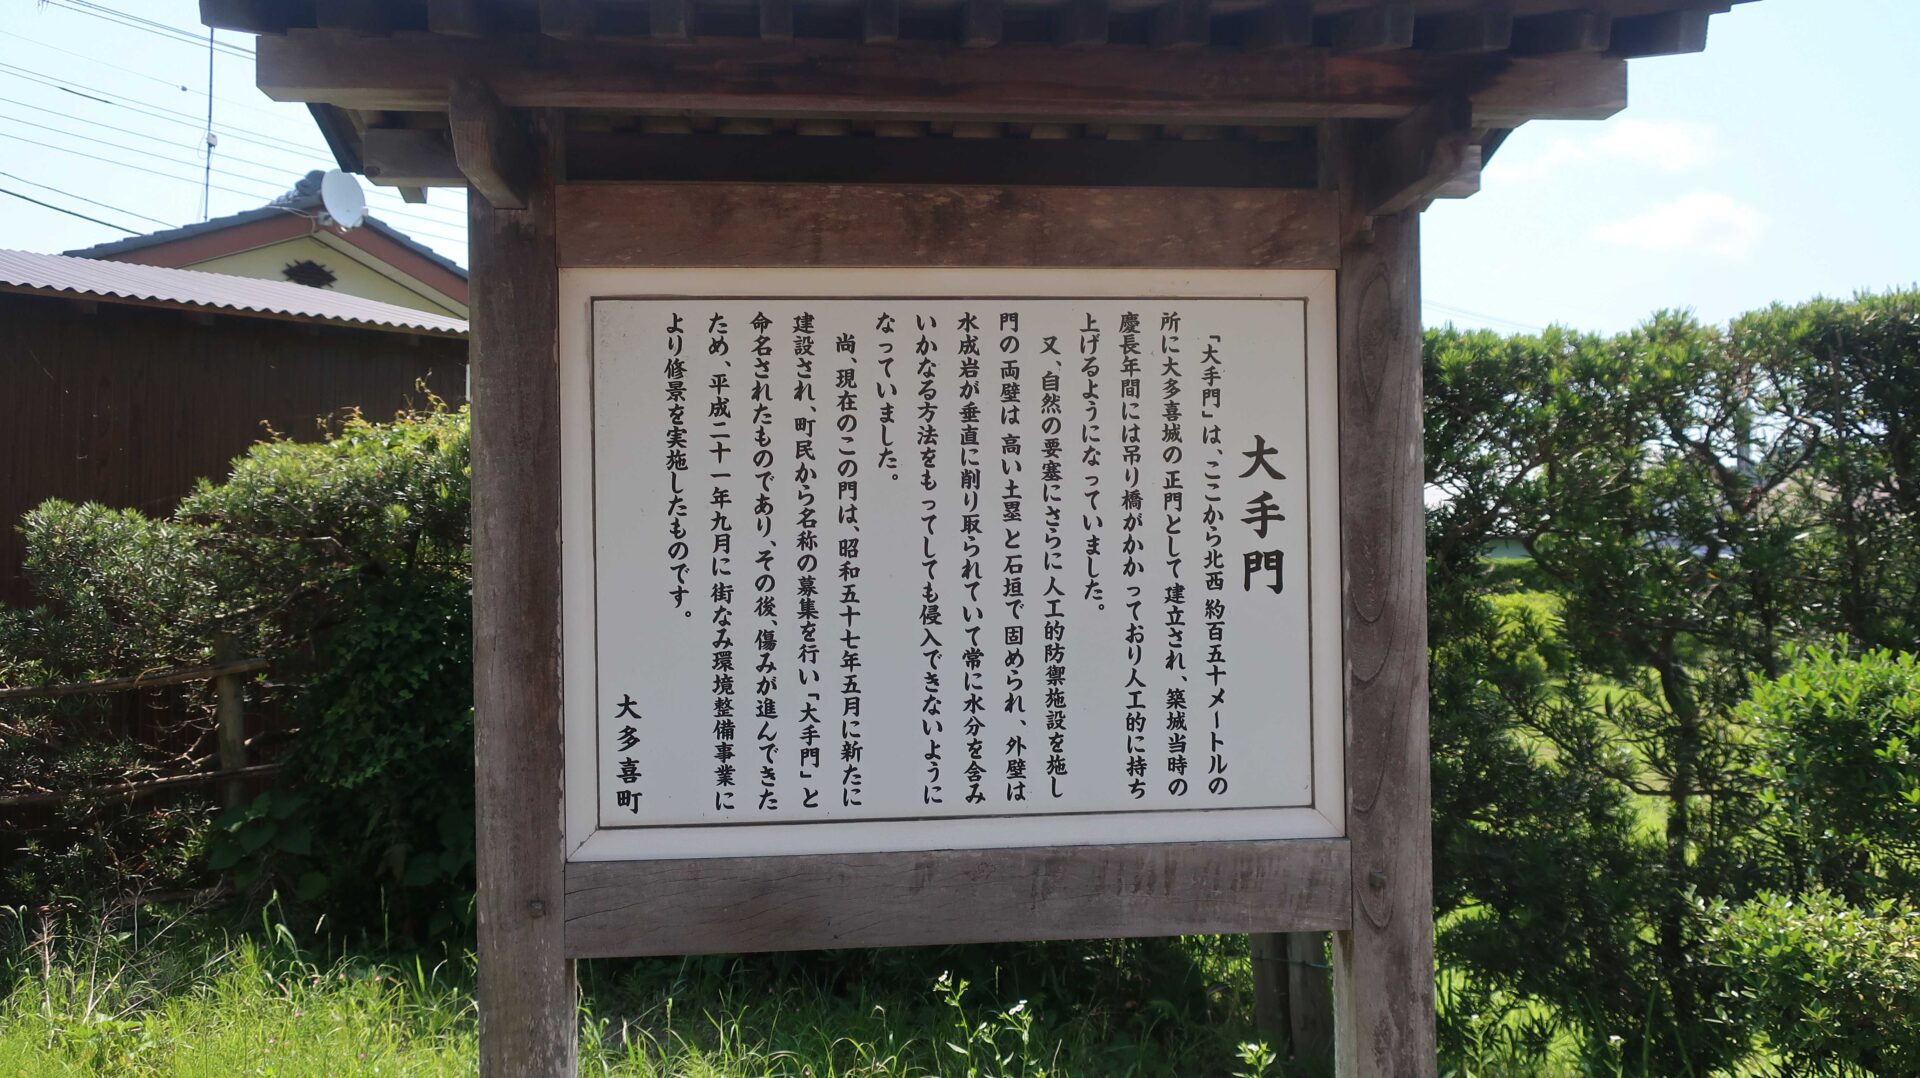 大手門
「大手門」は、ここから北西約百五十メートルの
所に大多喜城の正門として建立され、築城当時の
慶長年間には吊り橋がかかっており人工的に持ち
上げるようになっていました。
又、自然の要塞にさらに人工的防禦施設を施し
門の両壁は高い土塁と石垣で固められ、外壁は
水成岩が垂直に削り取られていて常に水分を含み
いかなる方法をもってしても侵入できないように
なっていました。
尚、現在のこの門は、昭和五十七年五月に新たに
建設され、町民から名称の募集を行い「大手門」と
命名されたものであり、その後、傷みが進んできた
ため、平成二十一年九月に街なみ環境整備事業に
より修景を実施したものです。
大多喜町